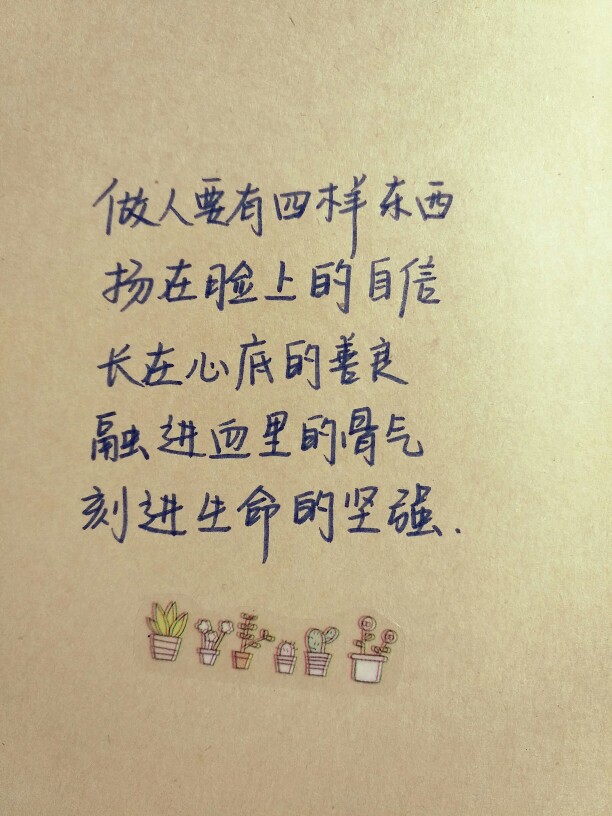 做人要有四样东西
扬在脸上的自信
长在心底的善良
融进血里的骨气
刻进生命的坚强.